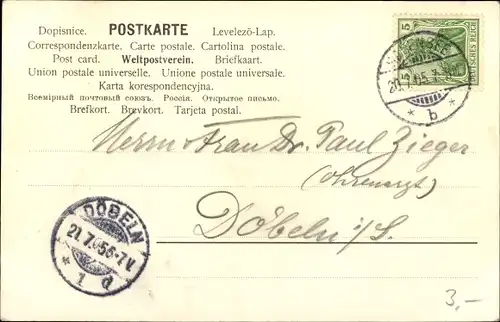 Dopisnice. POSTKARTE Levelezö-Lap.
Correspondenzkarte. Carte postale. Cartolina postale.
Post card. Weltpostverein. Briefkaart.
Union postale universelle. Unione postale universale.
Karta korespondencyjna.
Всемірный почтовый союзъ. Россія. Открытое письмо.
Brefkort. Brevkort. Tarjeta postal.
5 5
DEUTSCHES REICH
20.7.05.
* b *
Herrn u. Frau Dr. Paul Zieger
(Ohrenarzt)
Döbeln i/S.
DÖBELN
21.7.05 6-7 V.
* 1 d
3,-